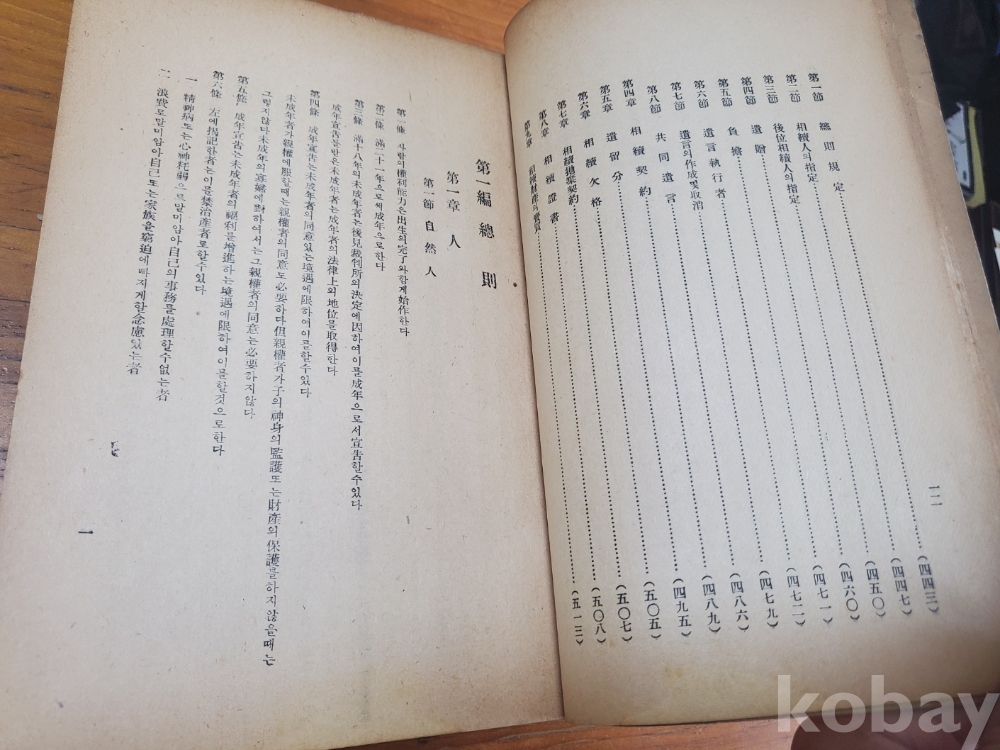 第一節 總則規定……(四四三)
第二節 相續人의指定……(四四七)
第三節 後位相續人의指定……(四五〇)
第四節 遺贈……(四六〇)
第五節 負擔……(四七一)
第六節 遺言執行者……(四七二)
第七節 遺言의作成及取消……(四七九)
第八節 共同遺言……(四八六)
第四章 相續契約……(四八九)
第五章 遺留分……(四九五)
第六章 相續欠格……(五〇五)
第七章 相續抛棄契約……(五〇七)
第八章 相續證書……(五〇八)
第九章 相續財産의賣買……(五一三)
一二
第一編 總則
第一章 人
第一節 自然人
第一條 사람의權利能力은出生의完了와함께始作한다
第二條 滿二十一年으로써成年으로한다
第三條 滿十八年의未成年者는後見裁判所의決定에因하여이를成年으로서宣告할수있다
成年宣告를받은未成年者는成年者의法律上의地位를取得한다
第四條 成年宣告는未成年者의同意있는境遇에限하여이를할수있다
未成年者가親權에服할때는親權者의同意도必要하다但親權者가子의神身의監護또는財産의保護를하지않을때는
그렇지않다未成年의寡婦에對하여서는그親權者의同意는必要하지않다
第五條 成年宣告는未成年者의福利를增進하는境遇에限하여이를할것으로한다
第六條 左에揭記한者는이를禁治産者로할수있다
一 精神病또는心神耗弱으로말미암아自己의事務를處理할수없는者
二 浪費로말미암아自己또는家族을窮迫에빠지게할念慮있는者
一
kobay